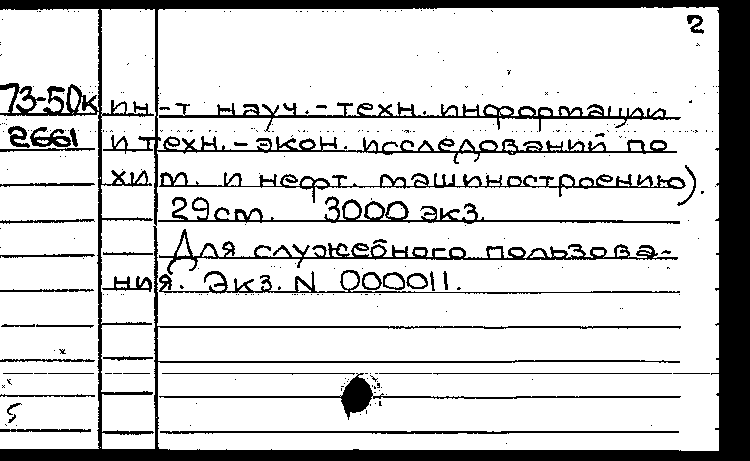 2
73-50к ин-т науч.-техн. информации
2661 и техн.-экон. исследований по
хим. и нефт. машиностроению).
29см. 3000 экз.
Для служебного пользова-
ния. Экз. N 000011.
5